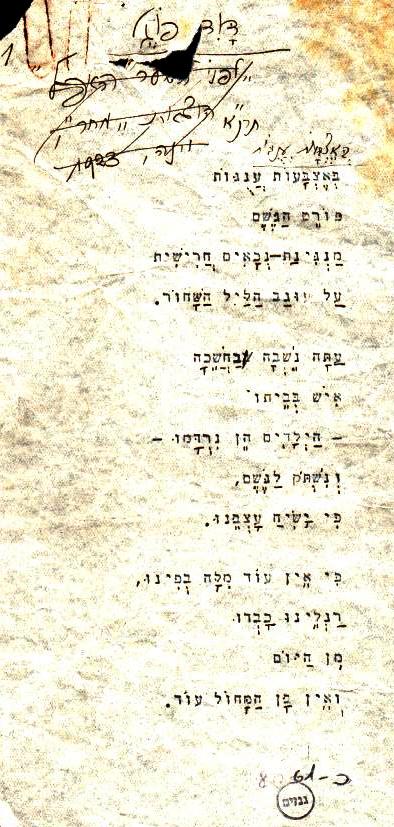 דָּוִד פוֹגֶל
"לפני השער האפל"
הוצאת "מחר",
וינה, 1923
תרנ"א
1
בְּאֶצְבָּעוֹת עֲנֻגּוֹת
בְּאֶצְבָּעוֹת עֲנֻגּוֹת
פּוֹרֵט הַגֶּשֶׁם
מַנְגִּינַת-נְכָאִים חֲרִישִׁית
עַל עוּגַב הַלַּיִל הַשָּׁחוֹר.
עַתָּה נֵשְׁבָה בַחֲשֵׁכָה
אִישׁ בְּבֵיתוֹ
– הַיְלָדִים הֵן נִרְדָּמוּ –
וְנִשְׁתֹּק לַגֶּשֶׁם,
כִּי יָשִׂיחַ עָצְבֵּנוּ.
כִּי אֵין עוֹד מִלָּה בְּפִינוּ,
רַגְלֵינוּ כָּבְדוּ
מִן הַיּוֹם
וְאֵין בָּן הַמָּחוֹל עוֹד.
כ-61
גנזים